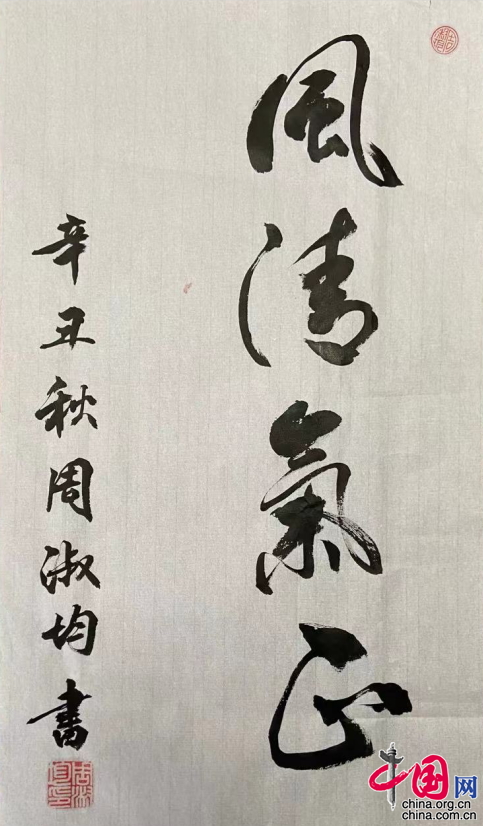 風清氣正
辛丑秋周淑均書
中国网
china.org.cn
china.com.cn